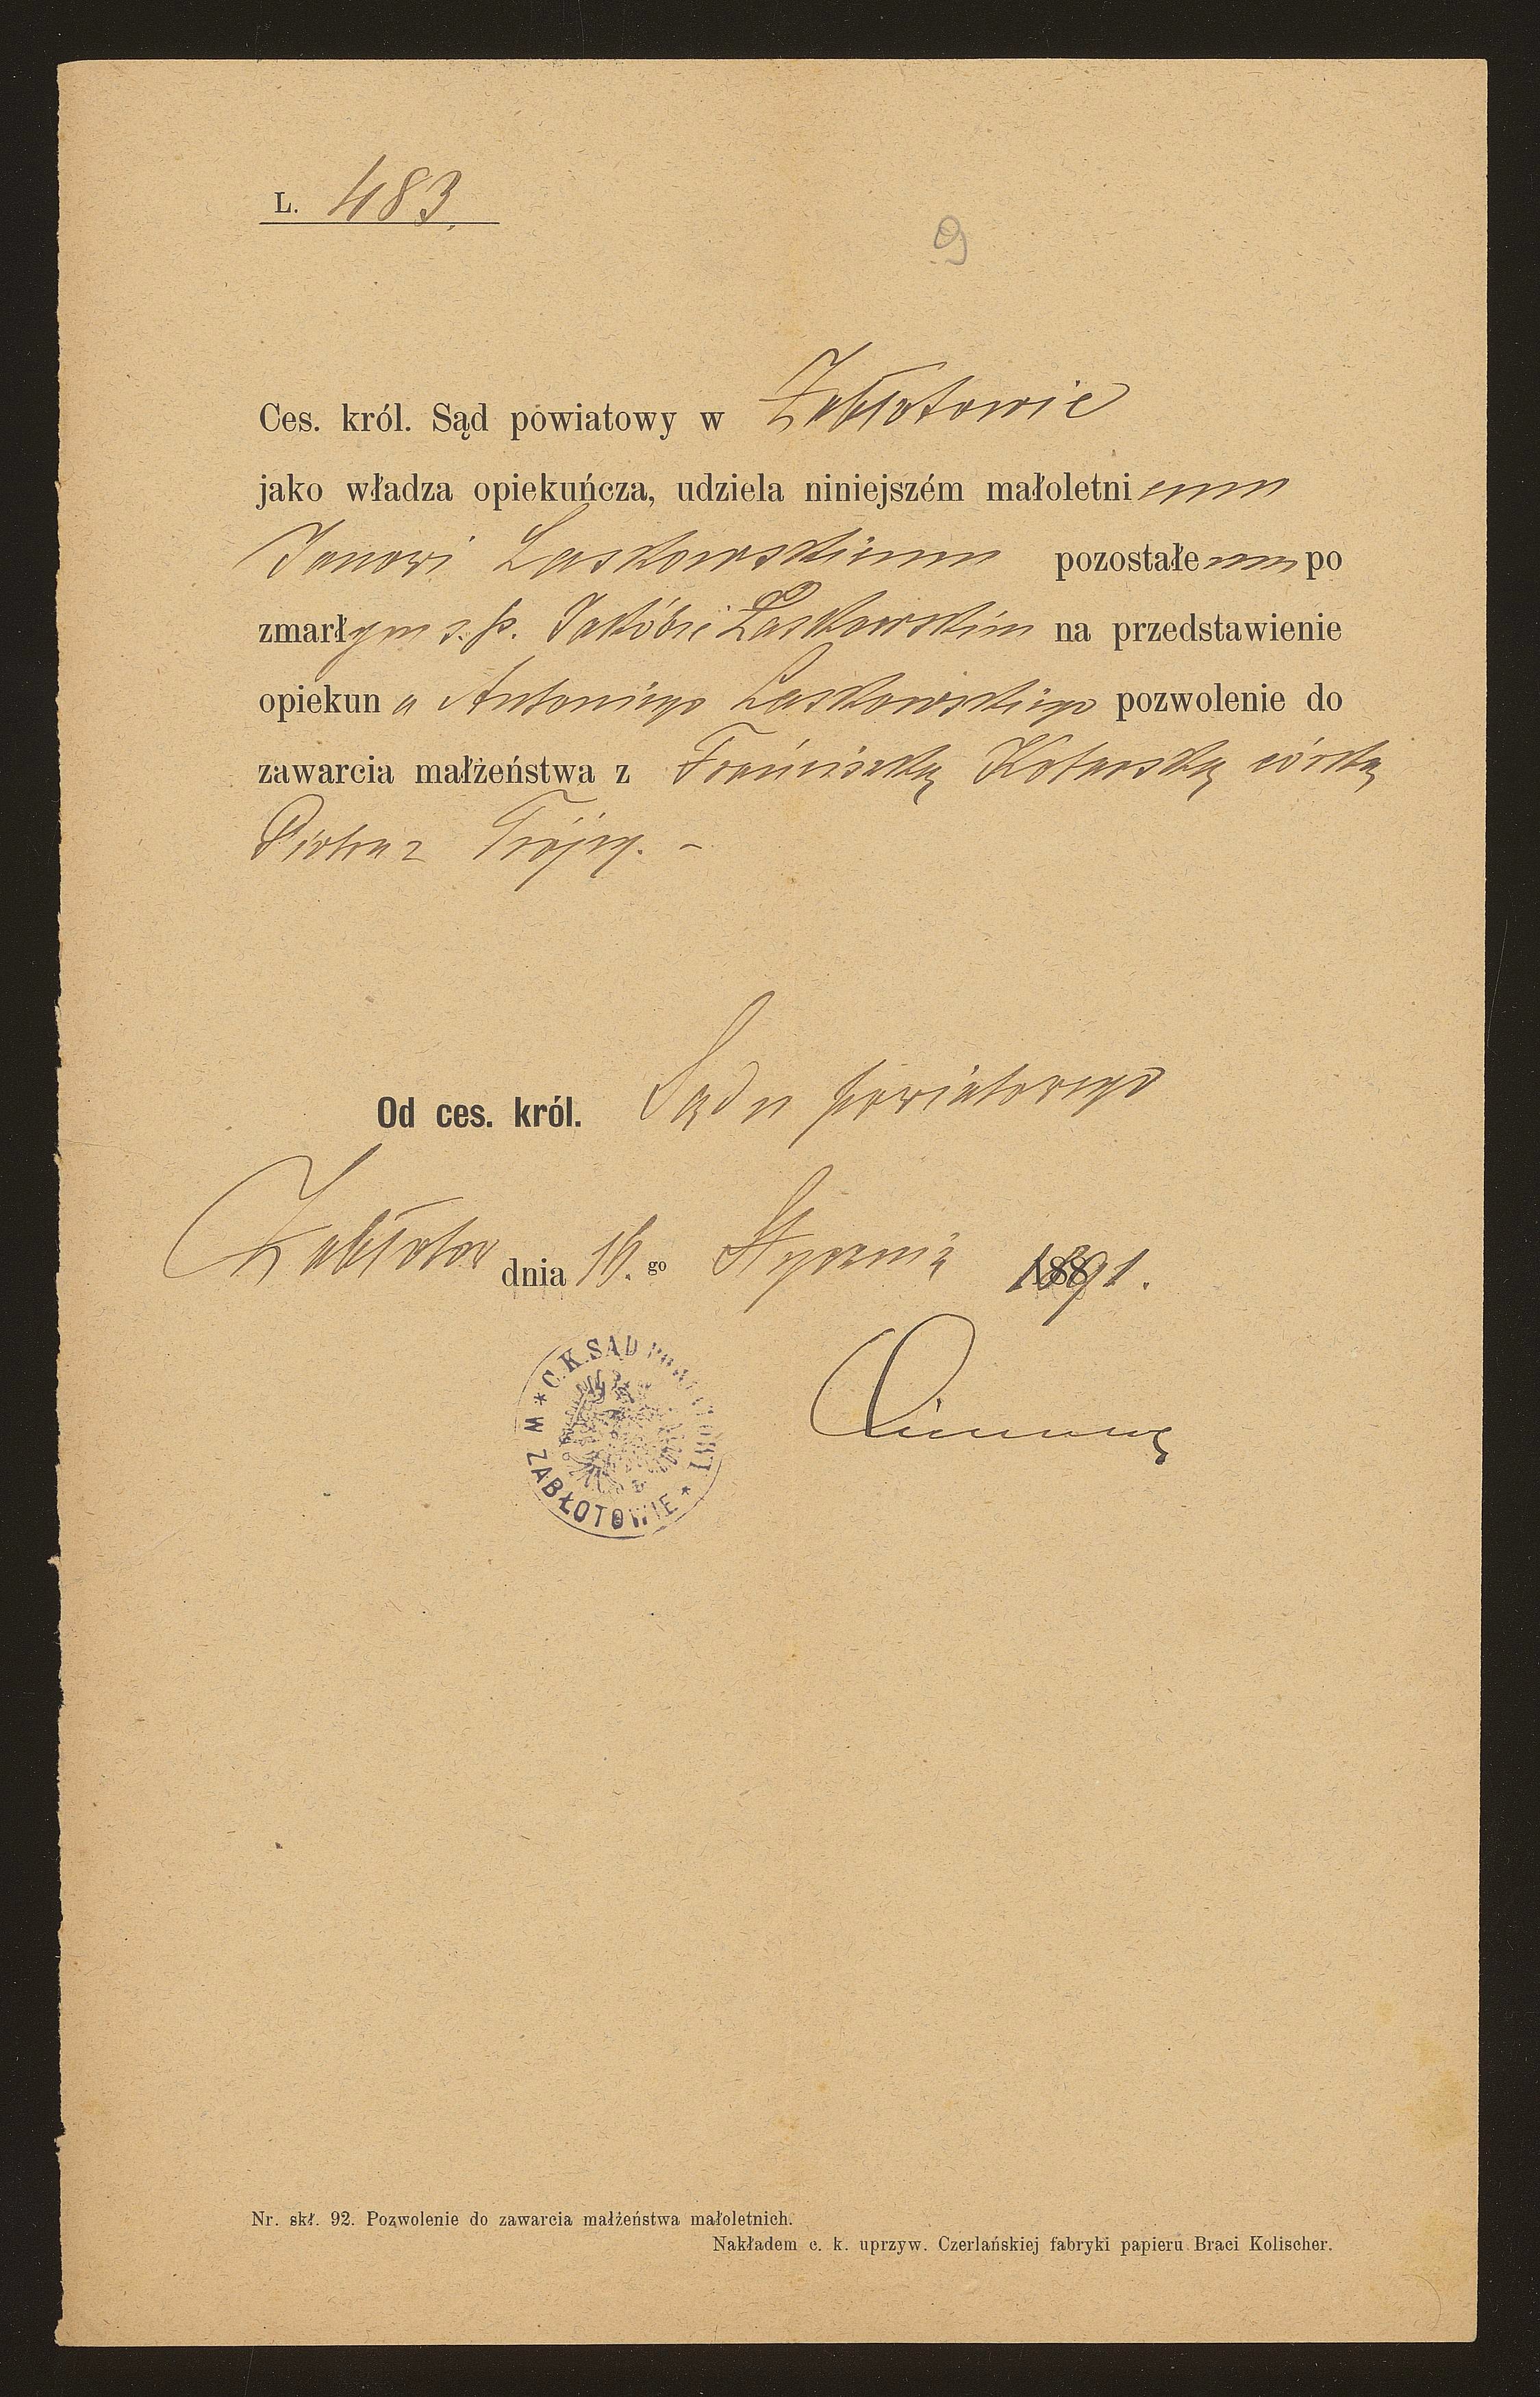 L. 483.
9
Ces. król. Sąd powiatowy w Zabłotowie
jako władza opiekuńcza, udziela niniejszém małoletniemu
Janowi Laskowskiemu pozostałemu po
zmarłym ś. p. Jakóbie Laskowskim na przedstawienie
opiekuna Antoniego Laskowskiego pozwolenie do
zawarcia małżeństwa z Franciszką Kotarską córką
Piotra z Trójcy. –
Od ces. król. Sądu powiatowego
Zabłotów dnia 16. go Stycznia 1891.
* C. K. SĄD POWIATOWY * W ZABŁOTOWIE
Nr. skł. 92. Pozwolenie do zawarcia małżeństwa małoletnich.
Nakładem c. k. uprzyw. Czerlańskiej fabryki papieru Braci Kolischer.